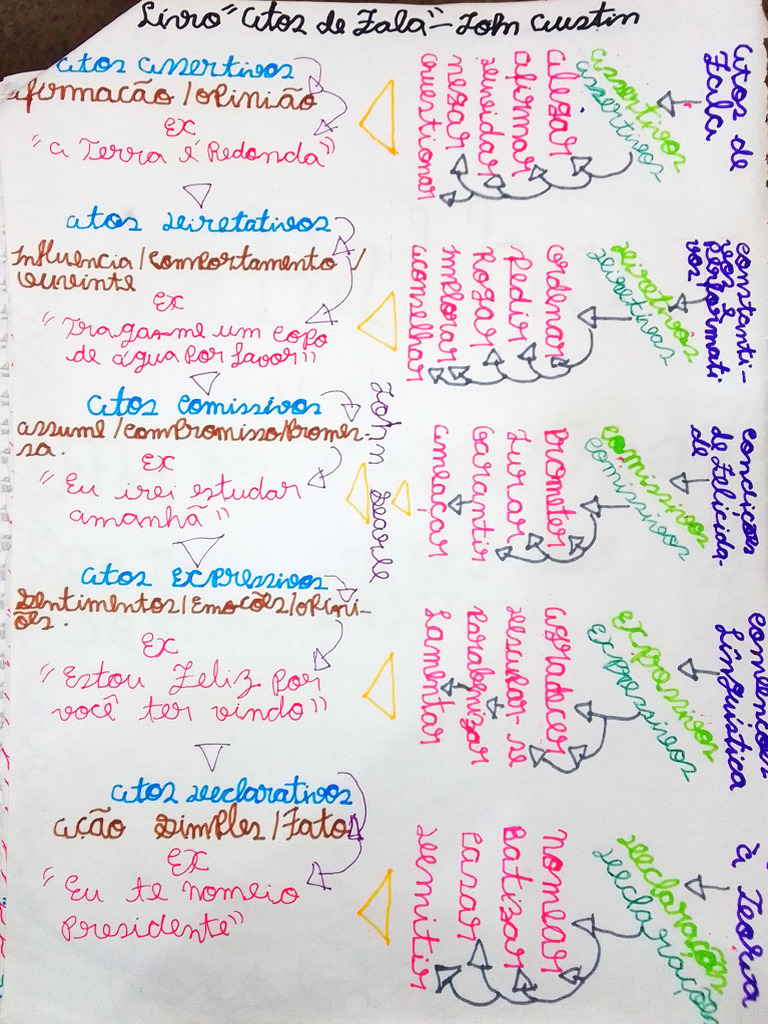 Livro "Atos de Fala" - John Austin
Atos assertivos
afirmação / opinião
Ex
"A Terra é Redonda"
Atos diretativos
Influência / comportamento /
ouvinte
Ex
"Traga-me um copo
de água por favor"
Atos comissivos
assume / compromisso / promes-
sa.
Ex
"Eu irei estudar
amanhã"
Atos Expressivos
Sentimentos / Emoções / opini-
ões.
Ex
"Estou Feliz por
você ter vindo"
Atos declarativos
Ação Simples / Fato
Ex
"Eu te nomeio
Presidente"
John Searle
Atos de
Fala
assertivos
assertivos
alegar
afirmar
duvidar
negar
questionar
constanti-
vos e
Performati
vos
diretivos
diretivas
ordenar
Pedir
Rogar
Implorar
aconselhar
condições
de Felicida-
de
comissivos
comissivos
Prometer
Jurar
Garantir
ameaçar
convenções
Linguística
Expossivos
Expressivos
agradecer
desculpar-se
Parabenizar
Lamentar
à Teoria
declarações
declarações
Nomear
Batizar
casar
demitir